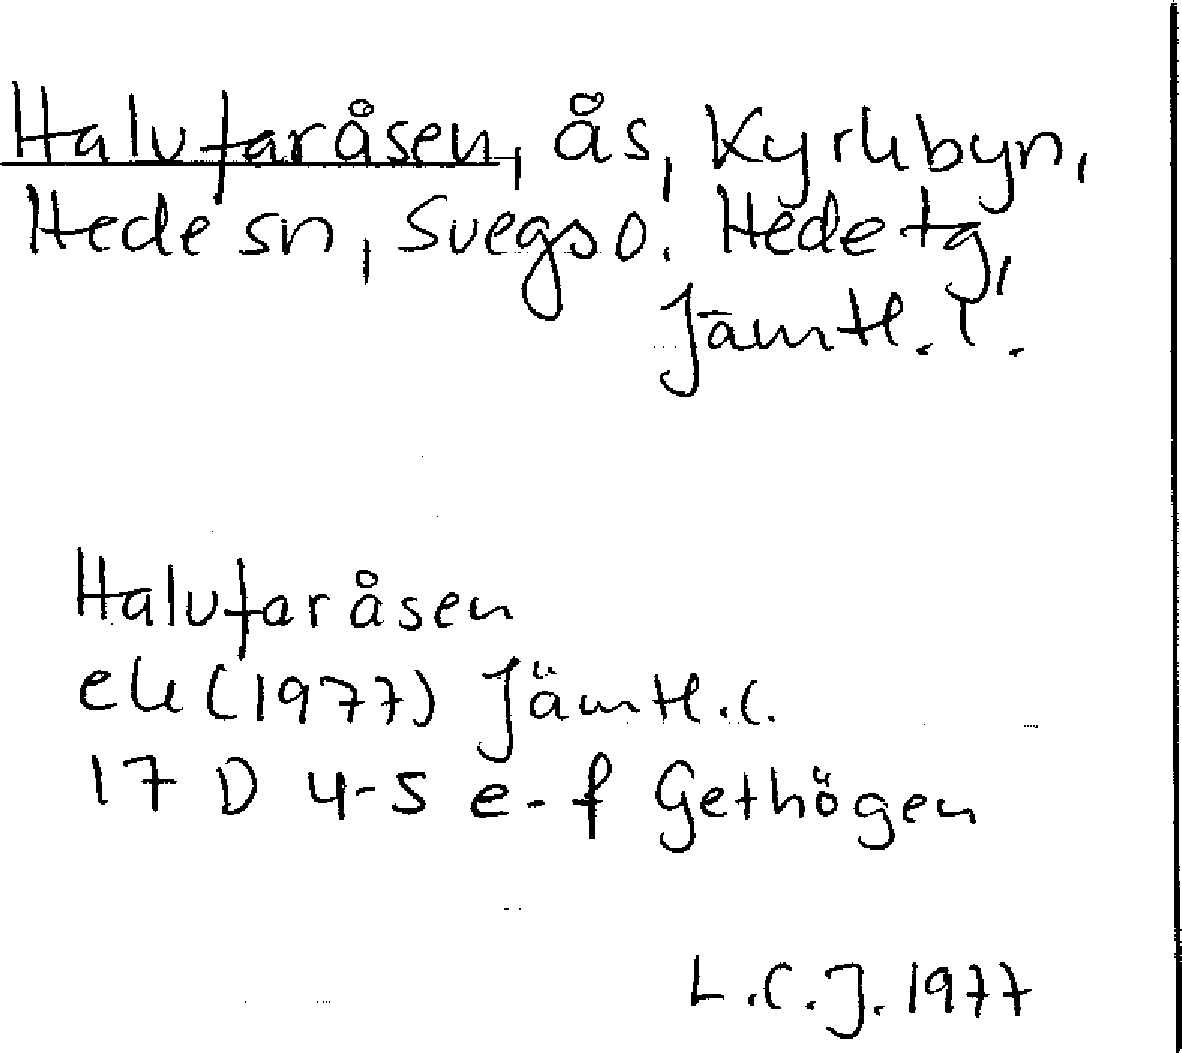 Halvfaråsen, ås, Kyrkbyn,
Hede sn, Svegs o. Hede tg,
Jämtl. l.
Halvfaråsen
ek (1977) Jämtl. l.
17 D 4-5 e-f Gethögen
L.C.J. 1977